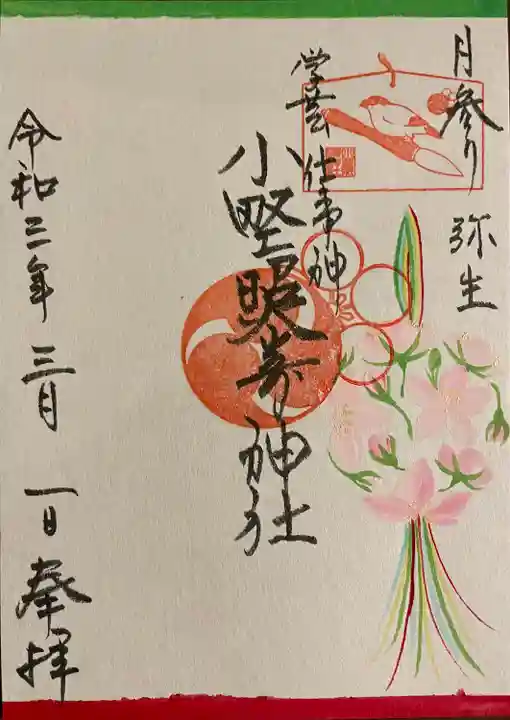 月参り 弥生
学芸 仕事神
小野照崎神社
令和三年 三月 一日 奉拝